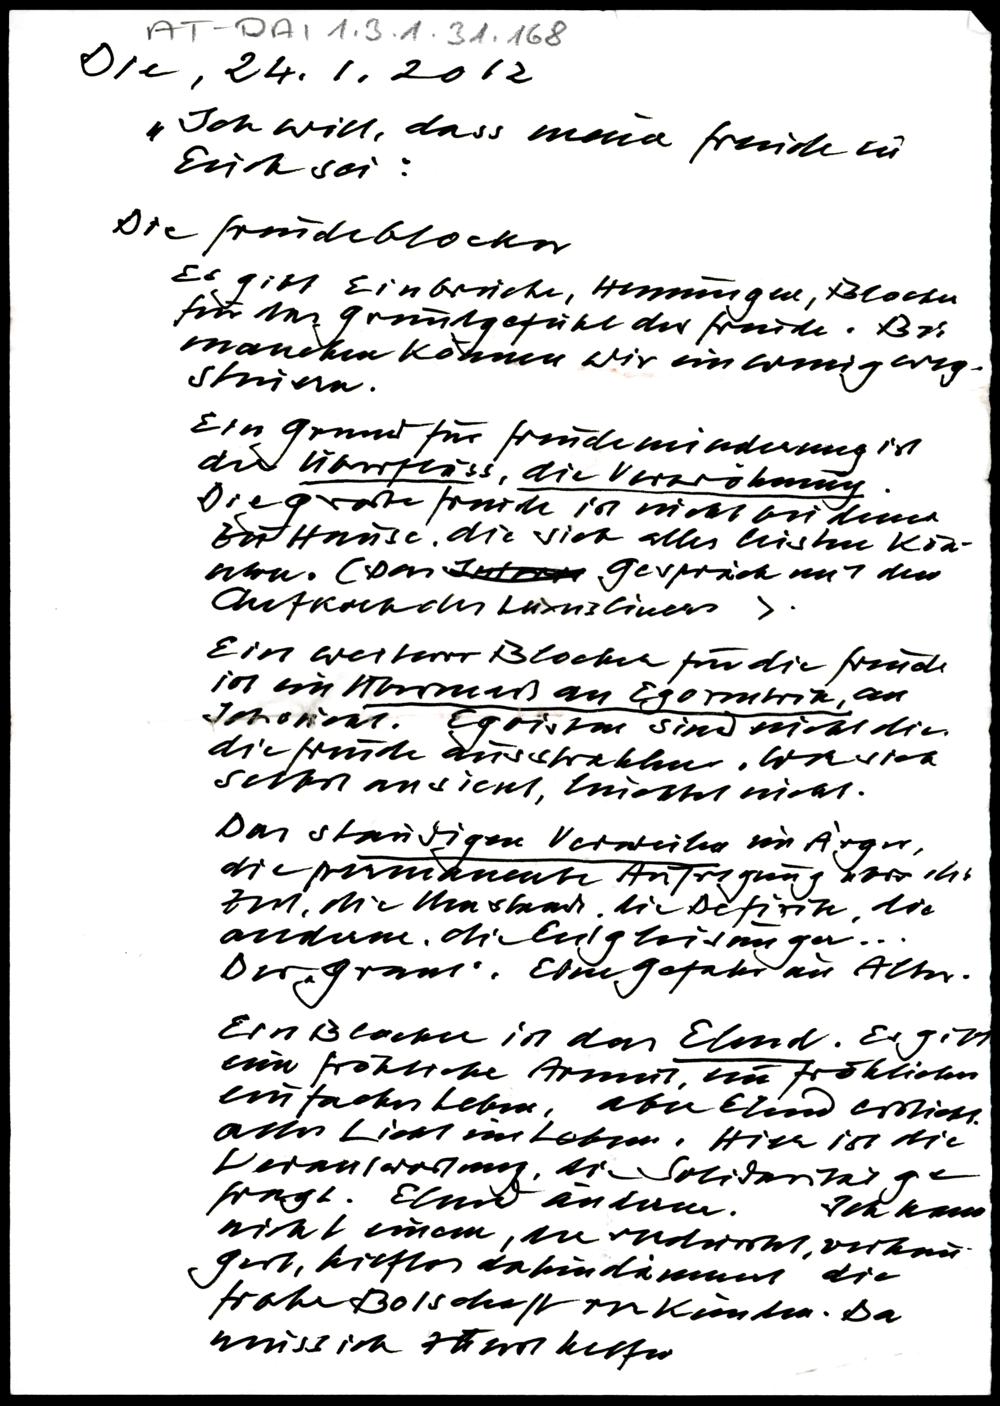 AT-DAI 1.3.1.31.168
Die, 24. 1. 2012
"Ich will, dass meine Freude in
Euch sei:
Die Freudeblocker
Es gibt Einbrüche, Hemmungen, Blocker
für das Grundgefühl der Freude. Bei
manchen können wir ein wenig weg-
steuern.
Ein Grund für Freudeminderung ist
der Überfluss, die Verwöhnung.
Die große Freude ist nicht bei denen
zu Hause, die sich alles leisten kön-
nen. (Das Gespräch mit dem
Chefkoch des Luxusliners).
Ein weiterer Blocker für die Freude
ist ein Übermaß an Egozentrik, an
Ichsucht. Egoisten sind nicht die,
die Freude ausstrahlen. Wer sich
selbst ansieht, leuchtet nicht.
Das ständigen Verweilen im Ärger,
die permanente Aufregung über die
Zeit, die Umstände, die Defizite, die
anderen, die Entgleisungen...
Der "Grant". Eine Gefahr im Alter.
Ein Blocker ist das Elend. Es gibt
eine fröhliche Armut, ein fröhliches
einfaches Leben, aber Elend erstickt
alles Licht im Leben. Hier ist die
Verantwortung, die Solidarität ge-
fragt. Elend ändern. Ich kann
nicht einem, der verdurstet, verhun-
gert, hilflos dahindämmert die
frohe Botschaft verkünden. Da
muss ich zuerst helfen